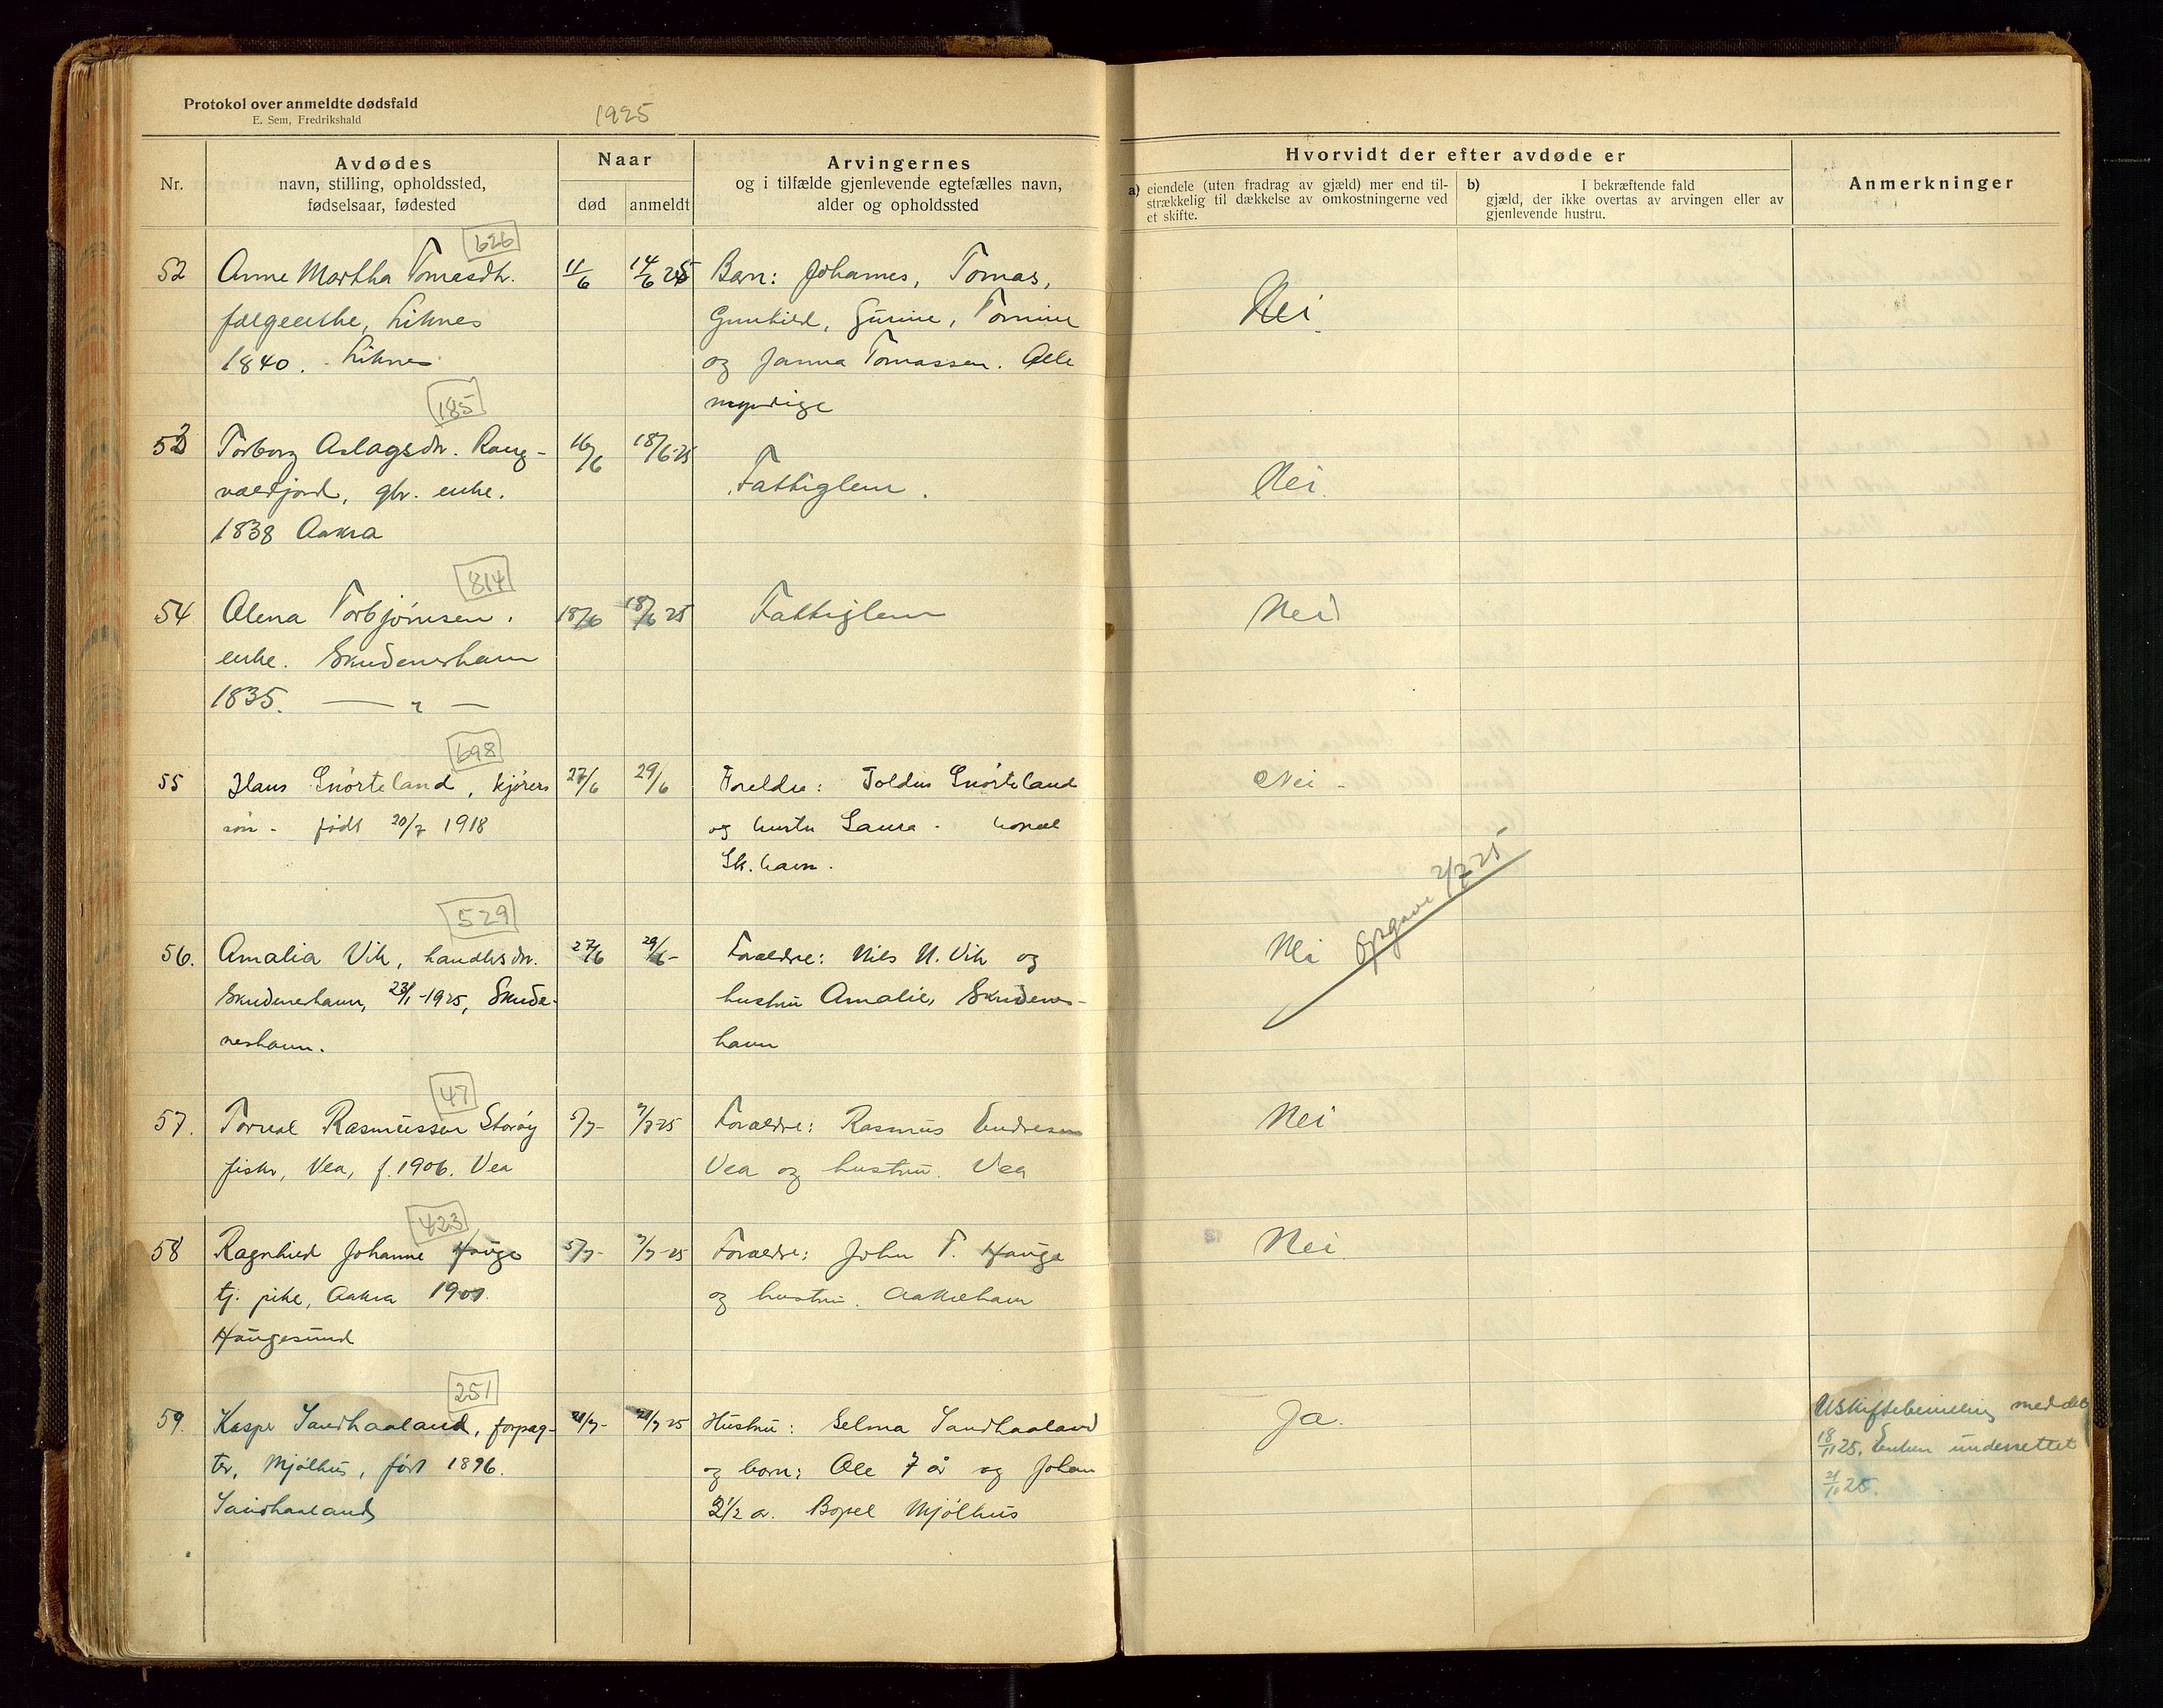 Protokol over anmeldte dødsfald
E. Sem, Fredrikshald
1925
Nr.
Avdødes
navn, stilling, opholdssted,
fødselsaar, fødested
Naar
død
anmeldt
Arvingernes
og i tilfælde gjenlevende egtefælles navn,
alder og opholdssted
Hvorvidt der efter avdøde er
a) eiendele (uten fradrag av gjæld) mer end til-
strækkelig til dækkelse av omkostningerne ved
et skifte.
b) I bekræftende fald
gjæld, der ikke overtas av arvingen eller av
gjenlevende hustru.
Anmerkninger
626
52 Anne Martha Tomasdtr. 11/6 14/6 25 Barn: Johannes, Tomas, Nei
Liknes Gunhild, Gurine, Tomine
1840. Liknes og Janna Tomassen. Alle
myndige
185
53 Torborg Aslagsdtr. Rang- 16/6 18/6-25 Fattiglem. Nei
valdfjord, gbr. enke.
1838 Aakra
814
54 Alena Torbjörnsen, 18/6 18/6 25 Fattiglem Nei
enke. Skudeneshavn
1835. — " —
698
55 Hans Snörteland, kjörers 27/6 29/6 Foreldre: Toldus Snörteland Nei -
sön - födt 20/7 1918 og hustr Laura - bopæl
Sk.havn.
529
56. Amalia Vik, handlesdtr. 27/6 29/6- Forældre: Nils N. Vik og Nei Opgave 2/7 25
Skudeneshavn, 23/1-1925, Skude- hustru Amalie, Skudenes-
neshavn. havn
47
57. Torval Rasmussen Storöy 5/7- 7/7-25 Forældre: Rasmus Endresen Nei
fisker, Vea, f. 1906. Vea Vea og hustru. Vea
423
58 Ragnhild Johanne Hauge 5/7- 7/7-25 Forældre: John T. Hauge Nei
tj. pike, Aakra og hustru. Aakrehavn
Haugesund
251
59. Kasper Sandhaaland, forpag- 21/7- 21/7 25 Hustru: Selma Sandhaaland Ja. Uskiftebevilling meddelt
ter, Mjölhus, født 1896. og born: Ole 7 år og Johan 18/11 25. Enken underrettet
Sandhaaland 2 1/2 a. Bopel Mjölhus 21/11 25.